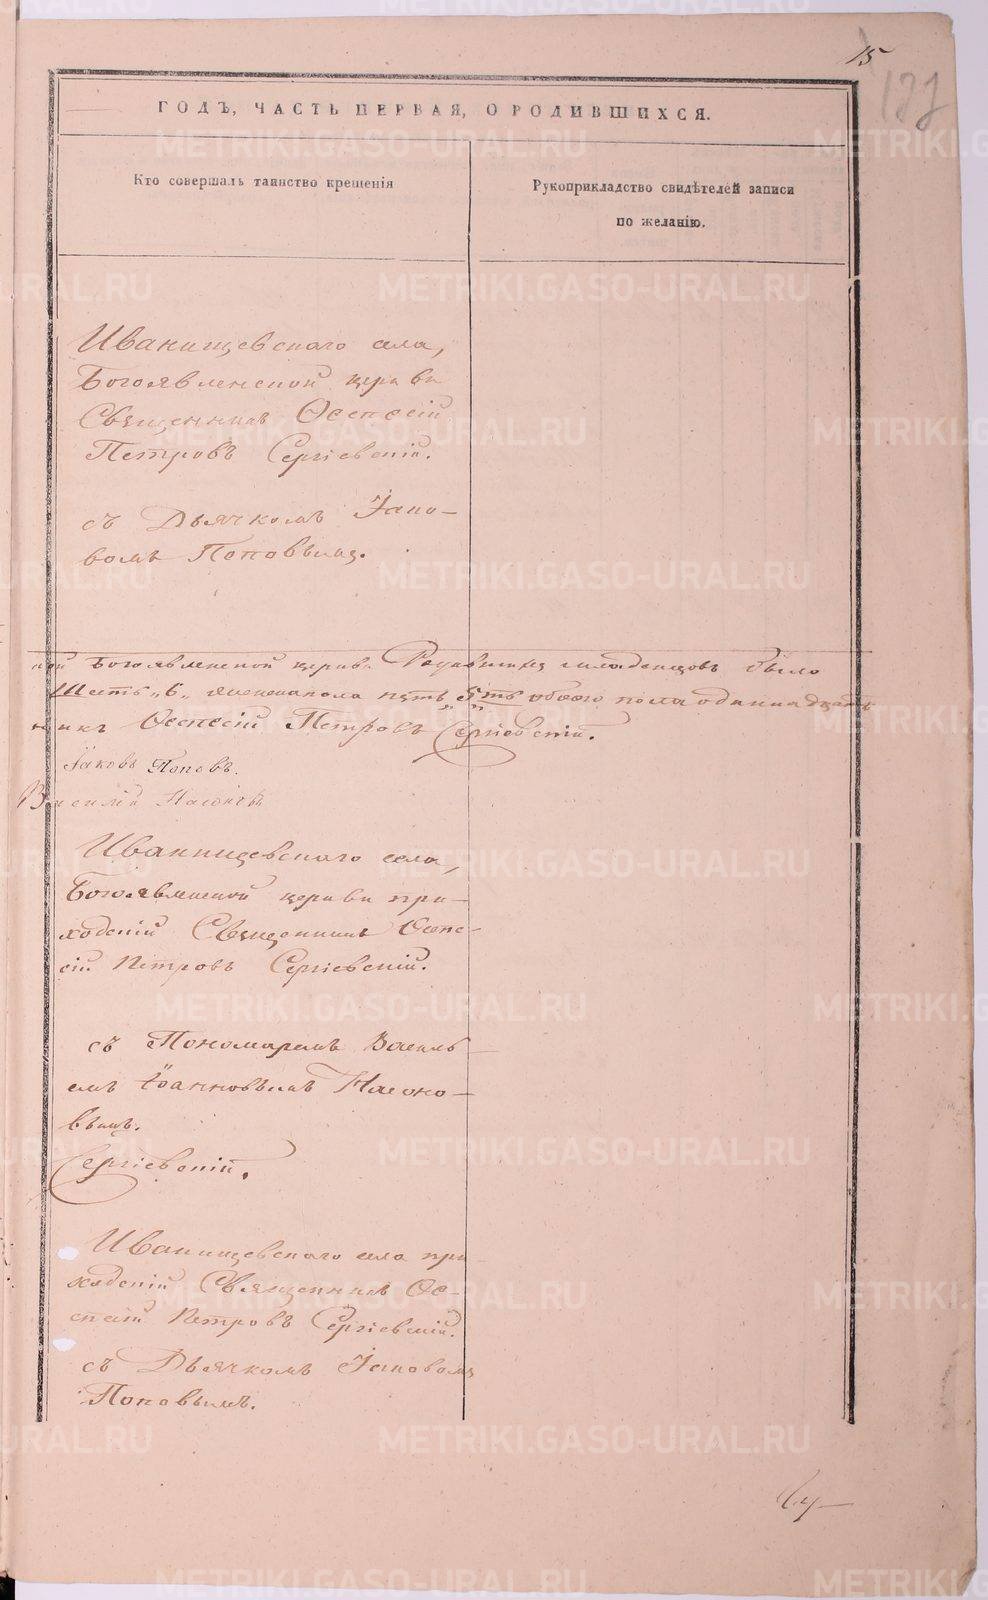 15
127
ГОДЪ, ЧАСТЬ ПЕРВАЯ, О РОДИВШИХСЯ.
Кто совершалъ таинство крещенія
Рукоприкладство свидѣтелей записи
по желанію.
Иванищевскаго села,
Богоявленской церкви
Священникъ Евсевій
Петровъ Сергіевскій.
съ Дьячкомъ Іако-
вомъ Поповымъ.
ной Богоявленской церкви Родившихся младенцовъ было
Шесть „6„ женскаго пола пять „5ть обоего пола одиннадцать
никъ Евсевій Петровъ Сергіевскій.
Іаковъ Поповъ.
Василій Насоновъ
Иванищевскаго села,
Богоявленской церкви при-
ходскій Священникъ Евсе-
вій Петровъ Сергіевскій.
съ Пономаремъ Василь-
емъ Іоанновымъ Насоно-
вымъ.
Сергіевскій.
Иванищевскаго села при
ходскій Священникъ Ев-
севій Петровъ Сергіевскій.
съ Дьячкомъ Іаковомъ
Поповымъ.
METRIKI.GASO-URAL.RU